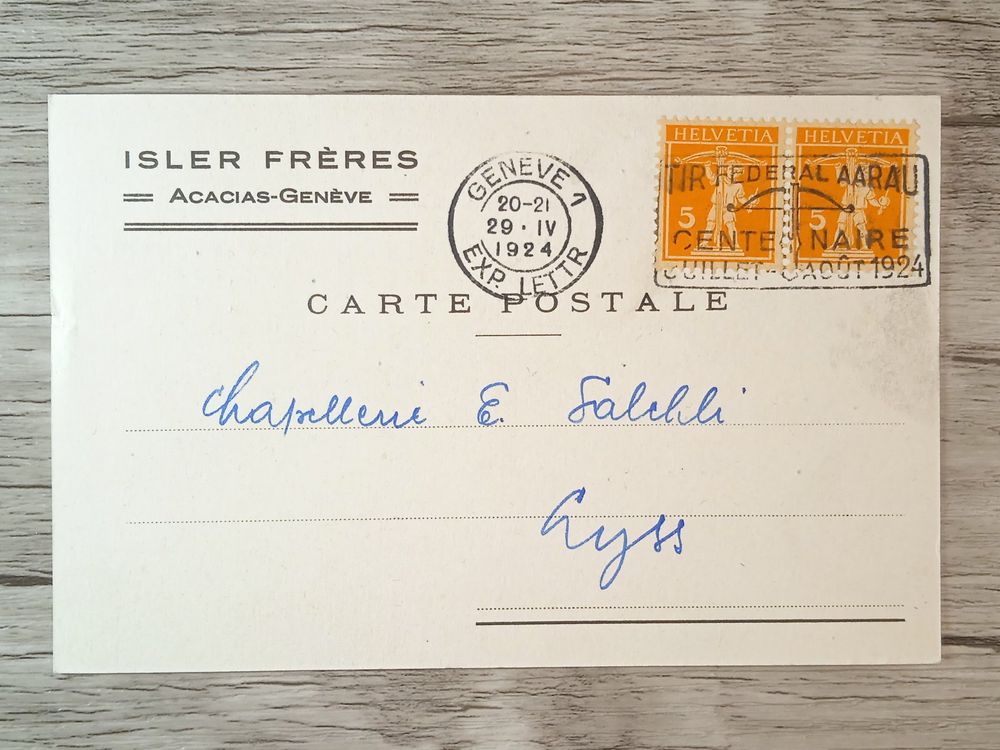 ISLER FRÈRES
ACACIAS-GENÈVE
GENEVE 1
20-21
29·IV
1924
EXP. LETTR
HELVETIA HELVETIA
5 5
TIR FEDERAL AARAU
CENTENAIRE
JUILLET- AOÛT 1924
CARTE POSTALE
Chapellerie E.
Lyss